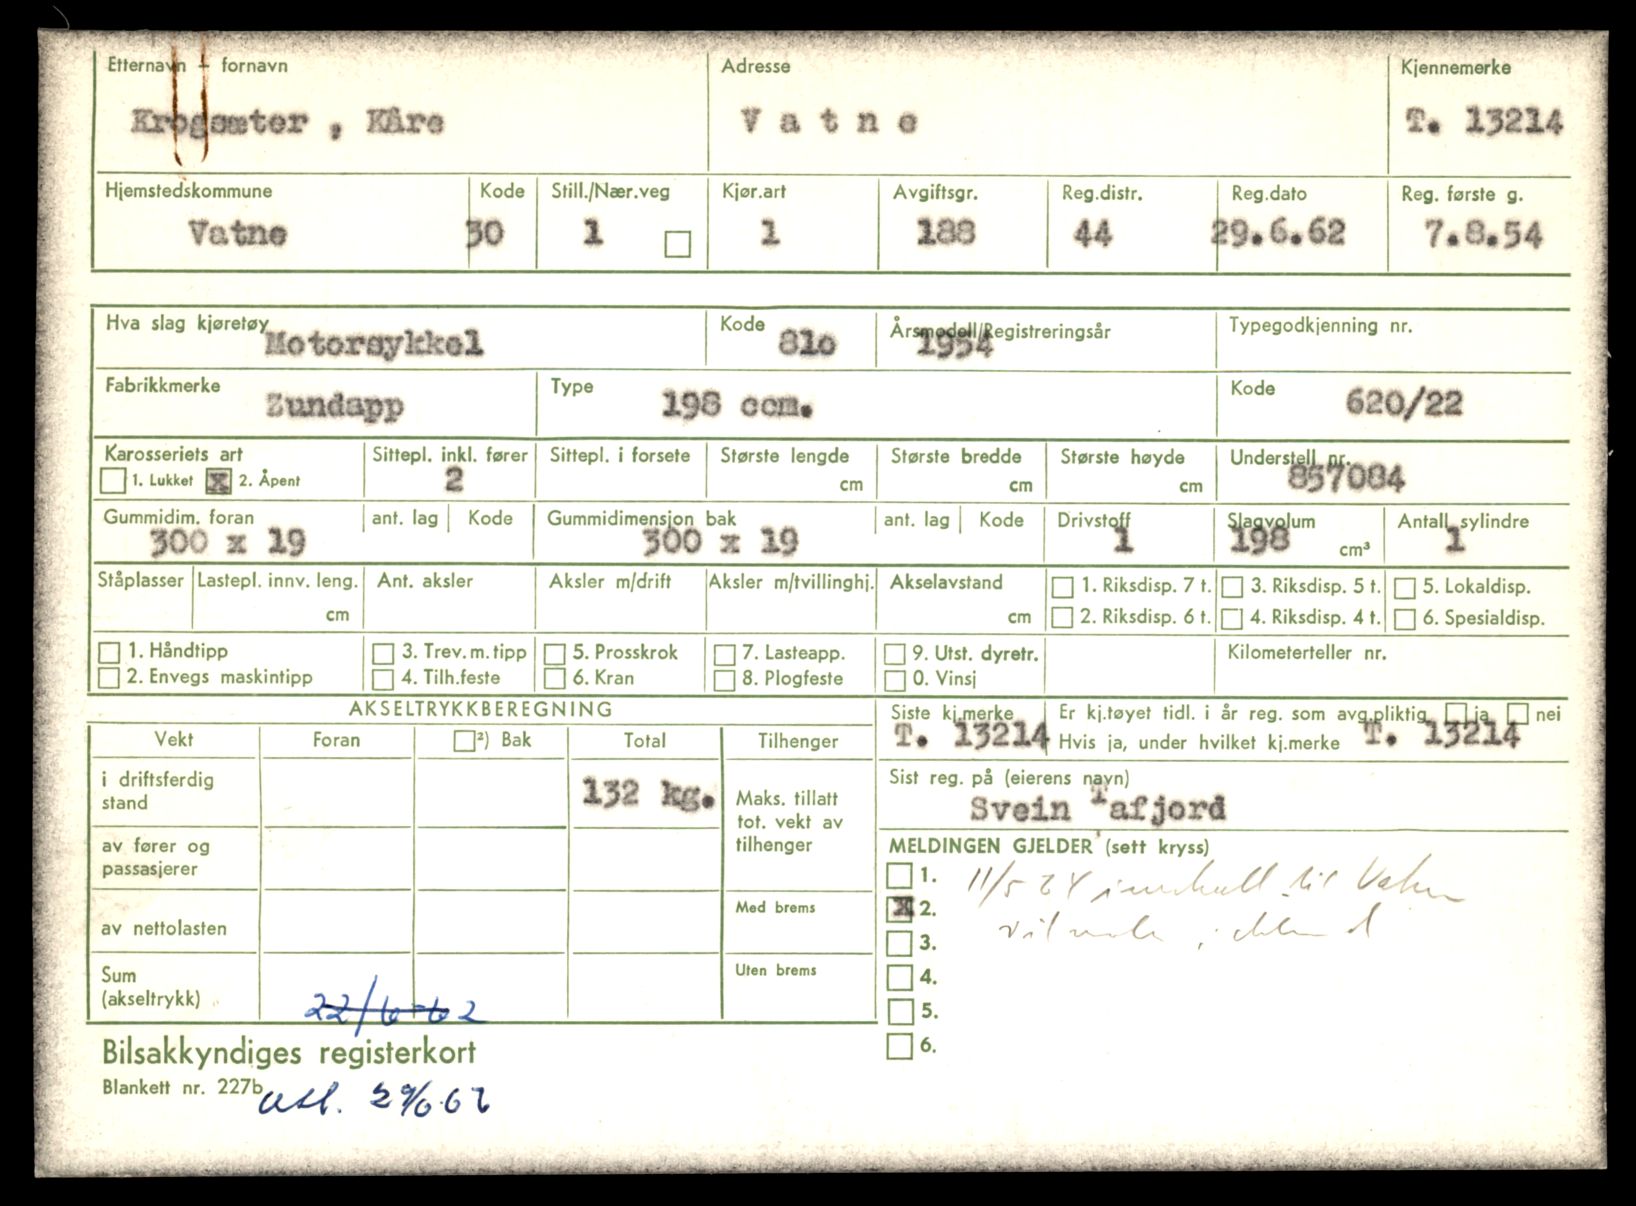 Etternavn – fornavn Adresse Kjennemerke
Krogsæter , Kåre V a t n e T. 13214
Hjemstedskommune Kode Still./Nær.veg Kjør.art Avgiftsgr. Reg.distr. Reg.dato Reg. første g.
Vatne 30 1 1 188 44 29.6.62 7.8.54
Hva slag kjøretøy Kode Årsmodell/Registreringsår Typegodkjenning nr.
Motorsykkel 81o 1954
Fabrikkmerke Type Kode
Zundapp 198 ccm. 620/22
Karosseriets art Sittepl. inkl. fører Sittepl. i forsete Største lengde Største bredde Største høyde Understell nr.
1. Lukket x 2. Åpent 2 cm cm cm 857084
Gummidim. foran ant. lag Kode Gummidimensjon bak ant. lag Kode Drivstoff Slagvolum Antall sylindre
300 x 19 300 x 19 1 198 cm³ 1
Ståplasser Lastepl. innv. leng. Ant. aksler Aksler m/drift Aksler m/tvillinghj. Akselavstand 1. Riksdisp. 7 t. 3. Riksdisp. 5 t. 5. Lokaldisp.
cm cm 2. Riksdisp. 6 t. 4. Riksdisp. 4 t. 6. Spesialdisp.
1. Håndtipp 3. Trev. m. tipp 5. Prosskrok 7. Lasteapp. 9. Utst. dyretr. Kilometerteller nr.
2. Envegs maskintipp 4. Tilh.feste 6. Kran 8. Plogfeste 0. Vinsj
AKSELTRYKKBEREGNING Siste kj.merke Er kj.tøyet tidl. i år reg. som avg.pliktig ja nei
Vekt Foran ²) Bak Total Tilhenger T. 13214 Hvis ja, under hvilket kj.merke T. 13214
i driftsferdig stand 132 kg. Maks. tillatt tot. vekt av tilhenger
Sist reg. på (eierens navn)
Svein Tafjord
av fører og passasjerer
MELDINGEN GJELDER (sett kryss)
1. 11/5 til
x 2.
av nettolasten Med brems
3.
Sum (akseltrykk) Uten brems
4.
22/6-62
5.
6.
Bilsakkyndiges registerkort
Blankett nr. 227b
utl. 29/6.62